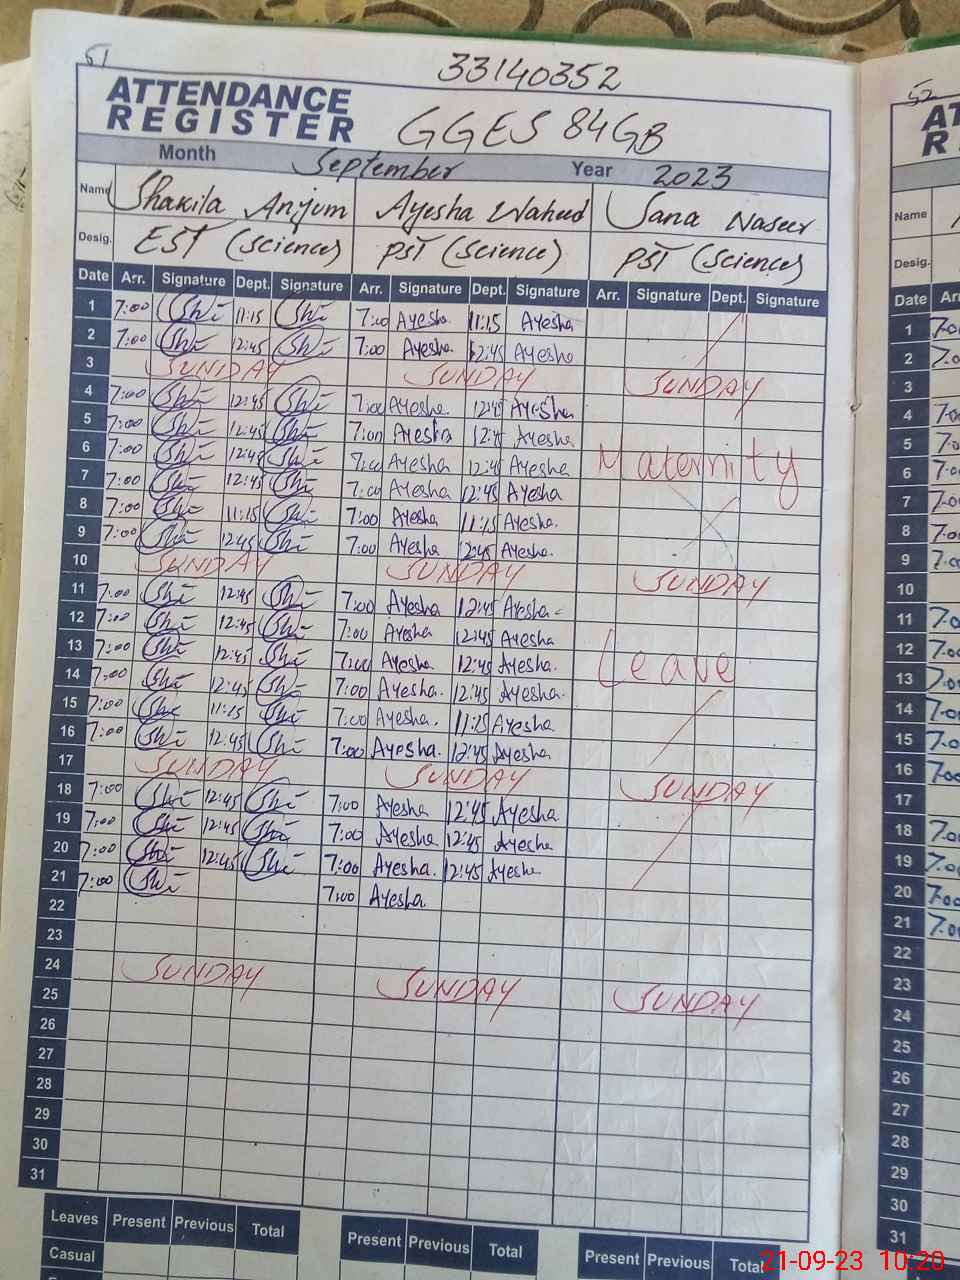 51
33140352
ATTENDANCE
REGISTER GGES 84GB
Month September Year 2023
Name Shakila Anjum Ayesha Waheed Sana Naseer
Desig. EST (Science) PST (Science) PST (Science)
Date Arr. Signature Dept. Signature Arr. Signature Dept. Signature Arr. Signature Dept. Signature
1 7:00 Shi 11:15 Shi 7:00 Ayesha 11:15 Ayesha
2 7:00 Shi 12:45 Shi 7:00 Ayesha 12:45 Ayesha
3 SUNDAY SUNDAY SUNDAY
4 7:00 Shi 12:45 Shi 7:00 Ayesha 12:45 Ayesha
5 7:00 Shi 12:45 Shi 7:00 Ayesha 12:4 Ayesha
6 7:00 Shi 12:45 Shi 7:00 Ayesha 12:45 Ayesha Maternity
7 7:00 Shi 12:45 Shi 7:00 Ayesha 12:45 Ayesha
8 7:00 Shi 11:15 Shi 7:00 Ayesha 11:15 Ayesha
9 7:00 Shi 12:45 Shi 7:00 Ayesha 12:45 Ayesha
10 SUNDAY SUNDAY SUNDAY
11 7:00 Shi 12:45 Shi 7:00 Ayesha 12:45 Ayesha
12 7:00 Shi 12:45 Shi 7:00 Ayesha 12:45 Ayesha
13 7:00 Shi 12:45 Shi 7:00 Ayesha 12:45 Ayesha Leave
14 7:00 Shi 12:45 Shi 7:00 Ayesha 12:45 Ayesha
15 7:00 Shi 11:15 Shi 7:00 Ayesha 11:15 Ayesha
16 7:00 Shi 12:45 Shi 7:00 Ayesha 12:45 Ayesha
17 SUNDAY SUNDAY SUNDAY
18 7:00 Shi 12:45 Shi 7:00 Ayesha 12:45 Ayesha
19 7:00 Shi 12:45 Shi 7:00 Ayesha 12:45 Ayesha
20 7:00 Shi 12:45 Shi 7:00 Ayesha 12:45 Ayesha
21 7:00 Shi 7:00 Ayesha
22
23
24 SUNDAY SUNDAY SUNDAY
25
26
27
28
29
30
31
Leaves Present Previous Total Present Previous Total Present Previous Total
Casual
52
Name
Desig.
Date
1 7:0
2 7:0
3
4 7:0
5 7:0
6 7:0
7 7:0
8 7:0
9 7:0
10
11 7:0
12 7:0
13 7:0
14 7:0
15 7:0
16 7:00
17
18 7:0
19 7:00
20 7:00
21 7:00
22
23
24
25
26
27
28
29
30
31
21-09-23 10:20